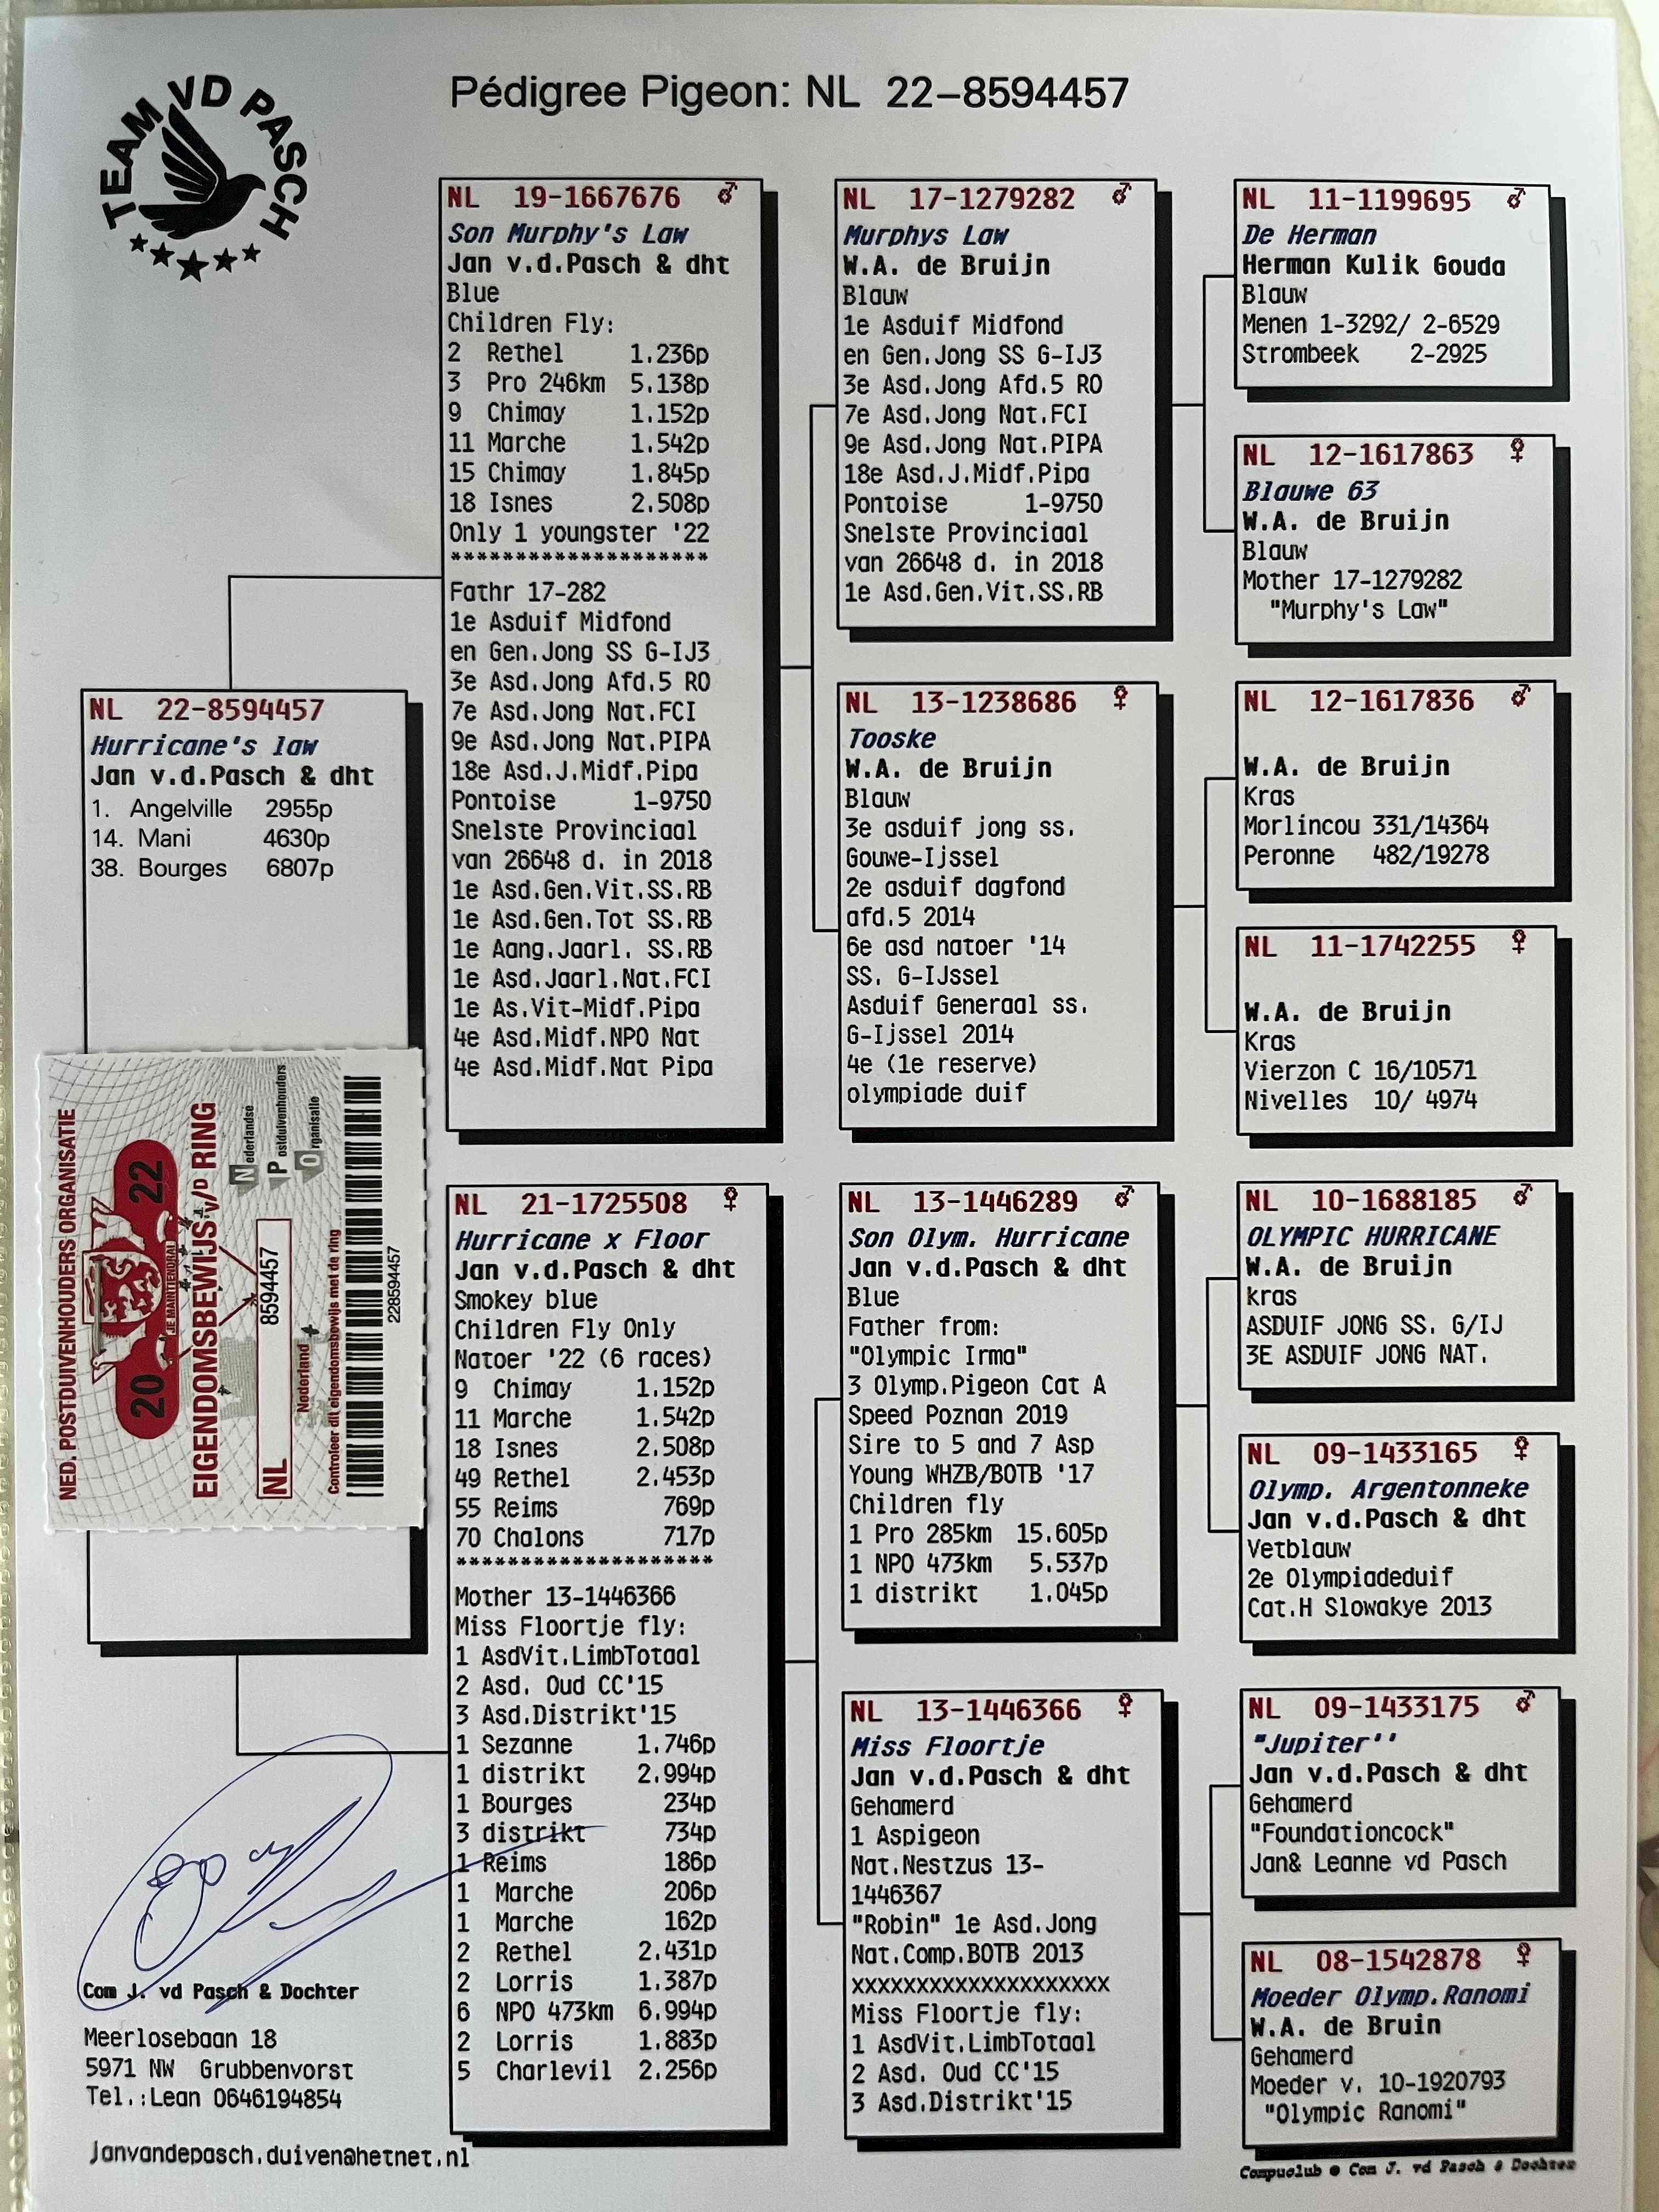 TEAM VD PASCH
Pédigree Pigeon: NL 22-8594457
NL 22-8594457
Hurricane's law
Jan v.d.Pasch & dht
1. Angelville 2955p
14. Mani 4630p
38. Bourges 6807p
NED. POSTDUIVENHOUDERS ORGANISATIE
20 22
JE MAINTIENDRAI
EIGENDOMSBEWIJS v/D RING
Nederlandse
Postduivenhouders
Organisatie
NL 8594457
Nederland
Controleer dit eigendomsbewijs met de ring
228594457
NL 19-1667676 ♂
Son Murphy's Law
Jan v.d.Pasch & dht
Blue
Children Fly:
2 Rethel 1.236p
3 Pro 246km 5.138p
9 Chimay 1.152p
11 Marche 1.542p
15 Chimay 1.845p
18 Isnes 2.508p
Only 1 youngster '22
********************
Fathr 17-282
1e Asduif Midfond
en Gen.Jong SS G-IJ3
3e Asd.Jong Afd.5 RO
7e Asd.Jong Nat.FCI
9e Asd.Jong Nat.PIPA
18e Asd.J.Midf.Pipa
Pontoise 1-9750
Snelste Provinciaal
van 26648 d. in 2018
1e Asd.Gen.Vit.SS.RB
1e Asd.Gen.Tot SS.RB
1e Aang.Jaarl. SS.RB
1e Asd.Jaarl.Nat.FCI
1e As.Vit-Midf.Pipa
4e Asd.Midf.NPO Nat
4e Asd.Midf.Nat Pipa
NL 21-1725508 ♀
Hurricane x Floor
Jan v.d.Pasch & dht
Smokey blue
Children Fly Only
Natoer '22 (6 races)
9 Chimay 1.152p
11 Marche 1.542p
18 Isnes 2.508p
49 Rethel 2.453p
55 Reims 769p
70 Chalons 717p
********************
Mother 13-1446366
Miss Floortje fly:
1 AsdVit.LimbTotaal
2 Asd. Oud CC'15
3 Asd.Distrikt'15
1 Sezanne 1.746p
1 distrikt 2.994p
1 Bourges 234p
3 distrikt 734p
1 Reims 186p
1 Marche 206p
1 Marche 162p
2 Rethel 2.431p
2 Lorris 1.387p
6 NPO 473km 6.994p
2 Lorris 1.883p
5 Charlevil 2.256p
NL 17-1279282 ♂
Murphys Law
W.A. de Bruijn
Blauw
1e Asduif Midfond
en Gen.Jong SS G-IJ3
3e Asd.Jong Afd.5 RO
7e Asd.Jong Nat.FCI
9e Asd.Jong Nat.PIPA
18e Asd.J.Midf.Pipa
Pontoise 1-9750
Snelste Provinciaal
van 26648 d. in 2018
1e Asd.Gen.Vit.SS.RB
NL 13-1238686 ♀
Tooske
W.A. de Bruijn
Blauw
3e asduif jong ss.
Gouwe-Ijssel
2e asduif dagfond
afd.5 2014
6e asd natoer '14
SS. G-IJssel
Asduif Generaal ss.
G-Ijssel 2014
4e (1e reserve)
olympiade duif
NL 13-1446289 ♂
Son Olym. Hurricane
Jan v.d.Pasch & dht
Blue
Father from:
"Olympic Irma"
3 Olymp.Pigeon Cat A
Speed Poznan 2019
Sire to 5 and 7 Asp
Young WHZB/BOTB '17
Children fly
1 Pro 285km 15.605p
1 NPO 473km 5.537p
1 distrikt 1.045p
NL 13-1446366 ♀
Miss Floortje
Jan v.d.Pasch & dht
Gehamerd
1 Aspigeon
Nat.Nestzus 13-
1446367
"Robin" 1e Asd.Jong
Nat.Comp.BOTB 2013
xxxxxxxxxxxxxxxxxxxx
Miss Floortje fly:
1 AsdVit.LimbTotaal
2 Asd. Oud CC'15
3 Asd.Distrikt'15
NL 11-1199695 ♂
De Herman
Herman Kulik Gouda
Blauw
Menen 1-3292/ 2-6529
Strombeek 2-2925
NL 12-1617863 ♀
Blauwe 63
W.A. de Bruijn
Blauw
Mother 17-1279282
"Murphy's Law"
NL 12-1617836 ♂
W.A. de Bruijn
Kras
Morlincou 331/14364
Peronne 482/19278
NL 11-1742255 ♀
W.A. de Bruijn
Kras
Vierzon C 16/10571
Nivelles 10/ 4974
NL 10-1688185 ♂
OLYMPIC HURRICANE
W.A. de Bruijn
kras
ASDUIF JONG SS. G/IJ
3E ASDUIF JONG NAT.
NL 09-1433165 ♀
Olymp. Argentonneke
Jan v.d.Pasch & dht
Vetblauw
2e Olympiadeduif
Cat.H Slowakye 2013
NL 09-1433175 ♂
"Jupiter''
Jan v.d.Pasch & dht
Gehamerd
"Foundationcock"
Jan& Leanne vd Pasch
NL 08-1542878 ♀
Moeder Olymp.Ranomi
W.A. de Bruin
Gehamerd
Moeder v. 10-1920793
"Olympic Ranomi"
Com J. vd Pasch & Dochter
Meerlosebaan 18
5971 NW Grubbenvorst
Tel.:Lean 0646194854
Janvandepasch.duiven@hetnet.nl
Compuclub © Com J. vd Pasch & Dochter